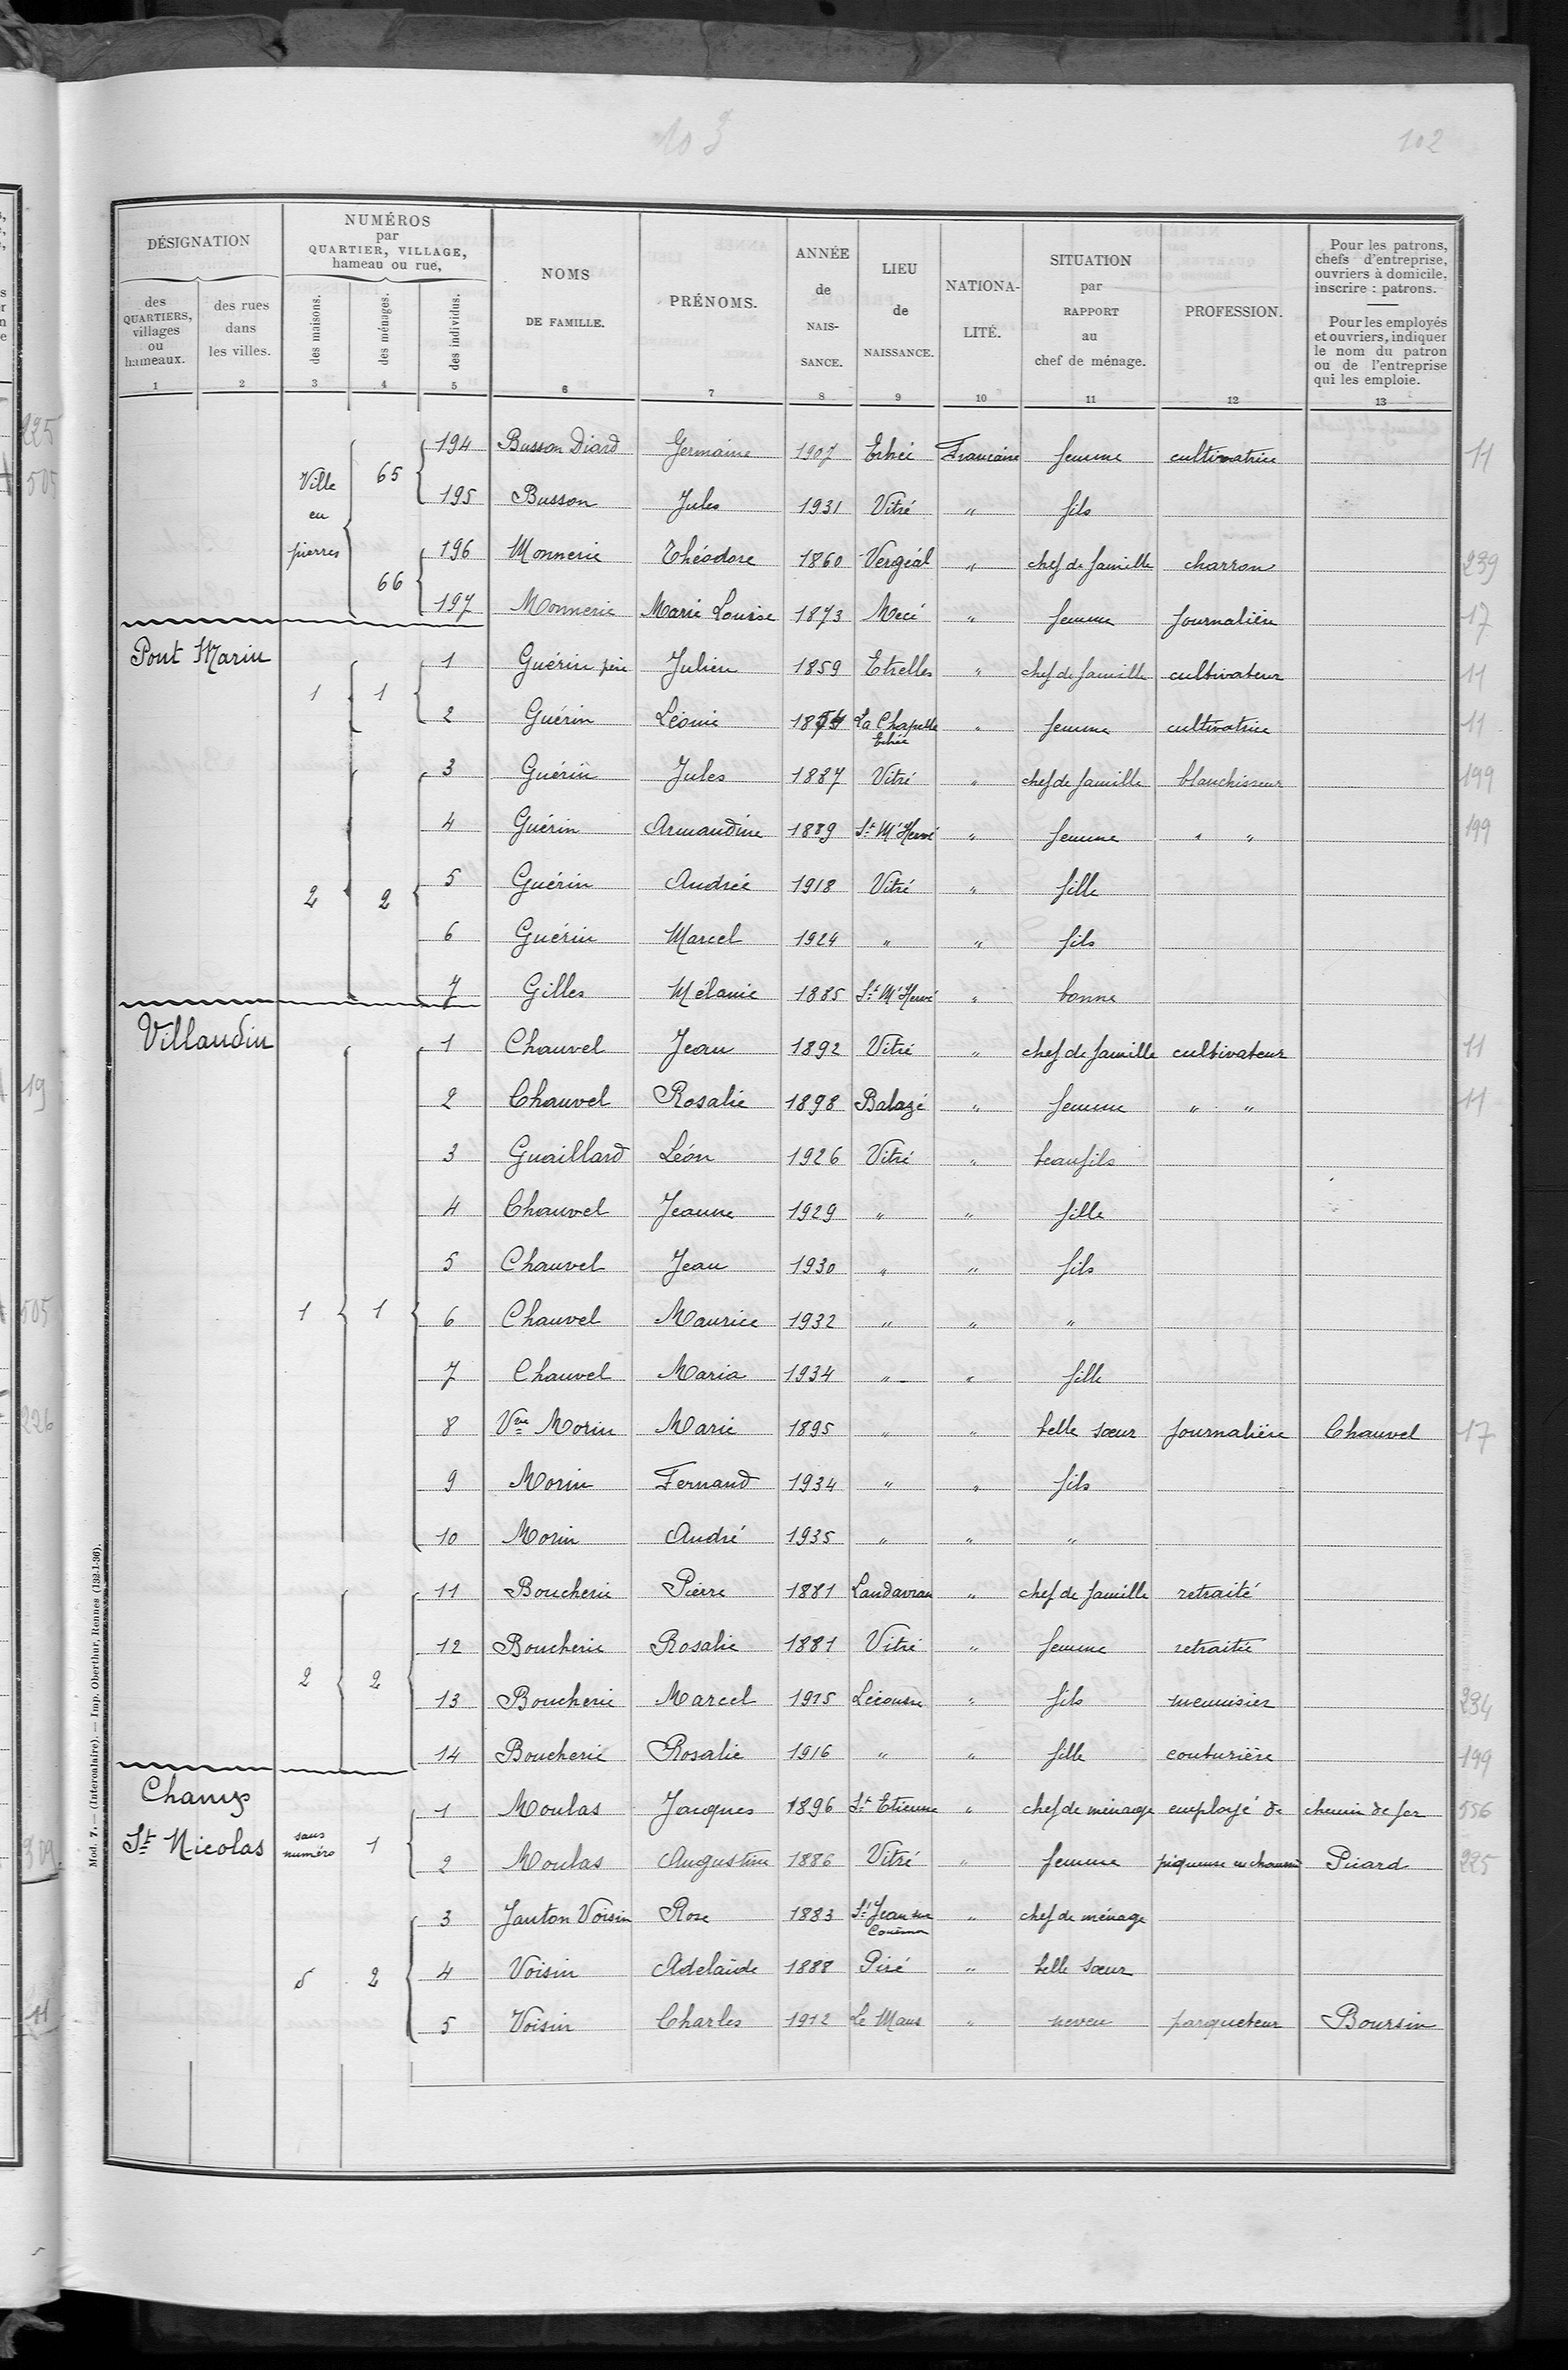 103
102
DÉSIGNATION
NUMÉROS
par
QUARTIER, VILLAGE,
hameau ou rue,
des
QUARTIERS,
villages
ou
hameaux.
1
des rues
dans
les villes.
2
des maisons.
3
des ménages.
4
des individus.
5
NOMS
DE FAMILLE.
6
PRÉNOMS.
7
ANNÉE
de
NAIS-
SANCE.
8
LIEU
de
NAISSANCE.
9
NATIONA-
LITÉ.
10
SITUATION
par
RAPPORT
au
chef de ménage.
11
PROFESSION.
12
Pour les patrons,
chefs d'entreprise,
ouvriers à domicile,
inscrire : patrons.
Pour les employés
et ouvriers, indiquer
le nom du patron
ou de l'entreprise
qui les emploie.
13
Ville
en
pierres
65 194 Busson Diard Germaine 1907 Erbrée Francaise femme cultivatrice 11
195 Busson Jules 1931 Vitré " fils
66 196 Monnerie Théodore 1860 Vergéal " chef de famille charron 239
197 Monnerie Marie Louise 1873 Mecé " femme journalière 17
Pont Marin
1 1 1 Guérin père Julien 1859 Etrelles " chef de famille cultivateur 11
2 Guérin Léonie La Chapelle Erbrée " femme cultivatrice 11
3 Guérin Jules 1887 Vitré " chef de famille blanchisseur 199
4 Guérin Armandine 1889 St M' Hervé " femme " " 199
2 2 5 Guérin Andrée 1918 Vitré " fille
6 Guérin Marcel 1924 " " fils
7 Gilles Mélanie 1885 St M' Hervé " bonne
Villaudin
1 Chauvel Jean 1892 Vitré " chef de famille cultivateur 11
2 Chauvel Rosalie 1898 Balazé " femme " " 11
3 Guaillard Léon 1926 Vitré " beaufils
4 Chauvel Jeanne 1929 " " fille
5 Chauvel Jean 1930 " " fils
1 1 6 Chauvel Maurice 1932 " " "
7 Chauvel Maria 1934 " " fille
8 Vve Morin Marie 1895 " " belle sœur journalière Chauvel 17
9 Morin Fernand 1934 " " fils
10 Morin André 1935 " " "
11 Boucherie Pierre 1881 Landavran " chef de famille retraité
12 Boucherie Rosalie 1881 Vitré " femme retraitée
2 2 13 Boucherie Marcel 1915 Lécousse " fils menuisier 234
14 Boucherie Rosalie 1916 " " fille couturière 199
Champ
St Nicolas
sans
numéro
1 1 Moulas Jacques 1896 St Etienne " chef de ménage employé de chemin de fer 556
2 Moulas Augustine 1886 Vitré " femme piqueuse en chaussures Picard 225
3 Janton Voisin Rose 1883 St Jean sur Couesnon " chef de ménage
5 2 4 Voisin Adelaïde 1888 Piré " belle sœur
5 Voisin Charles 1912 Le Mans " neveu parqueteur Boursin
Mod. 7. — (Intercalaire). — Imp. Oberthur, Rennes (132-1-36).
225
505
19
505
226
309
11